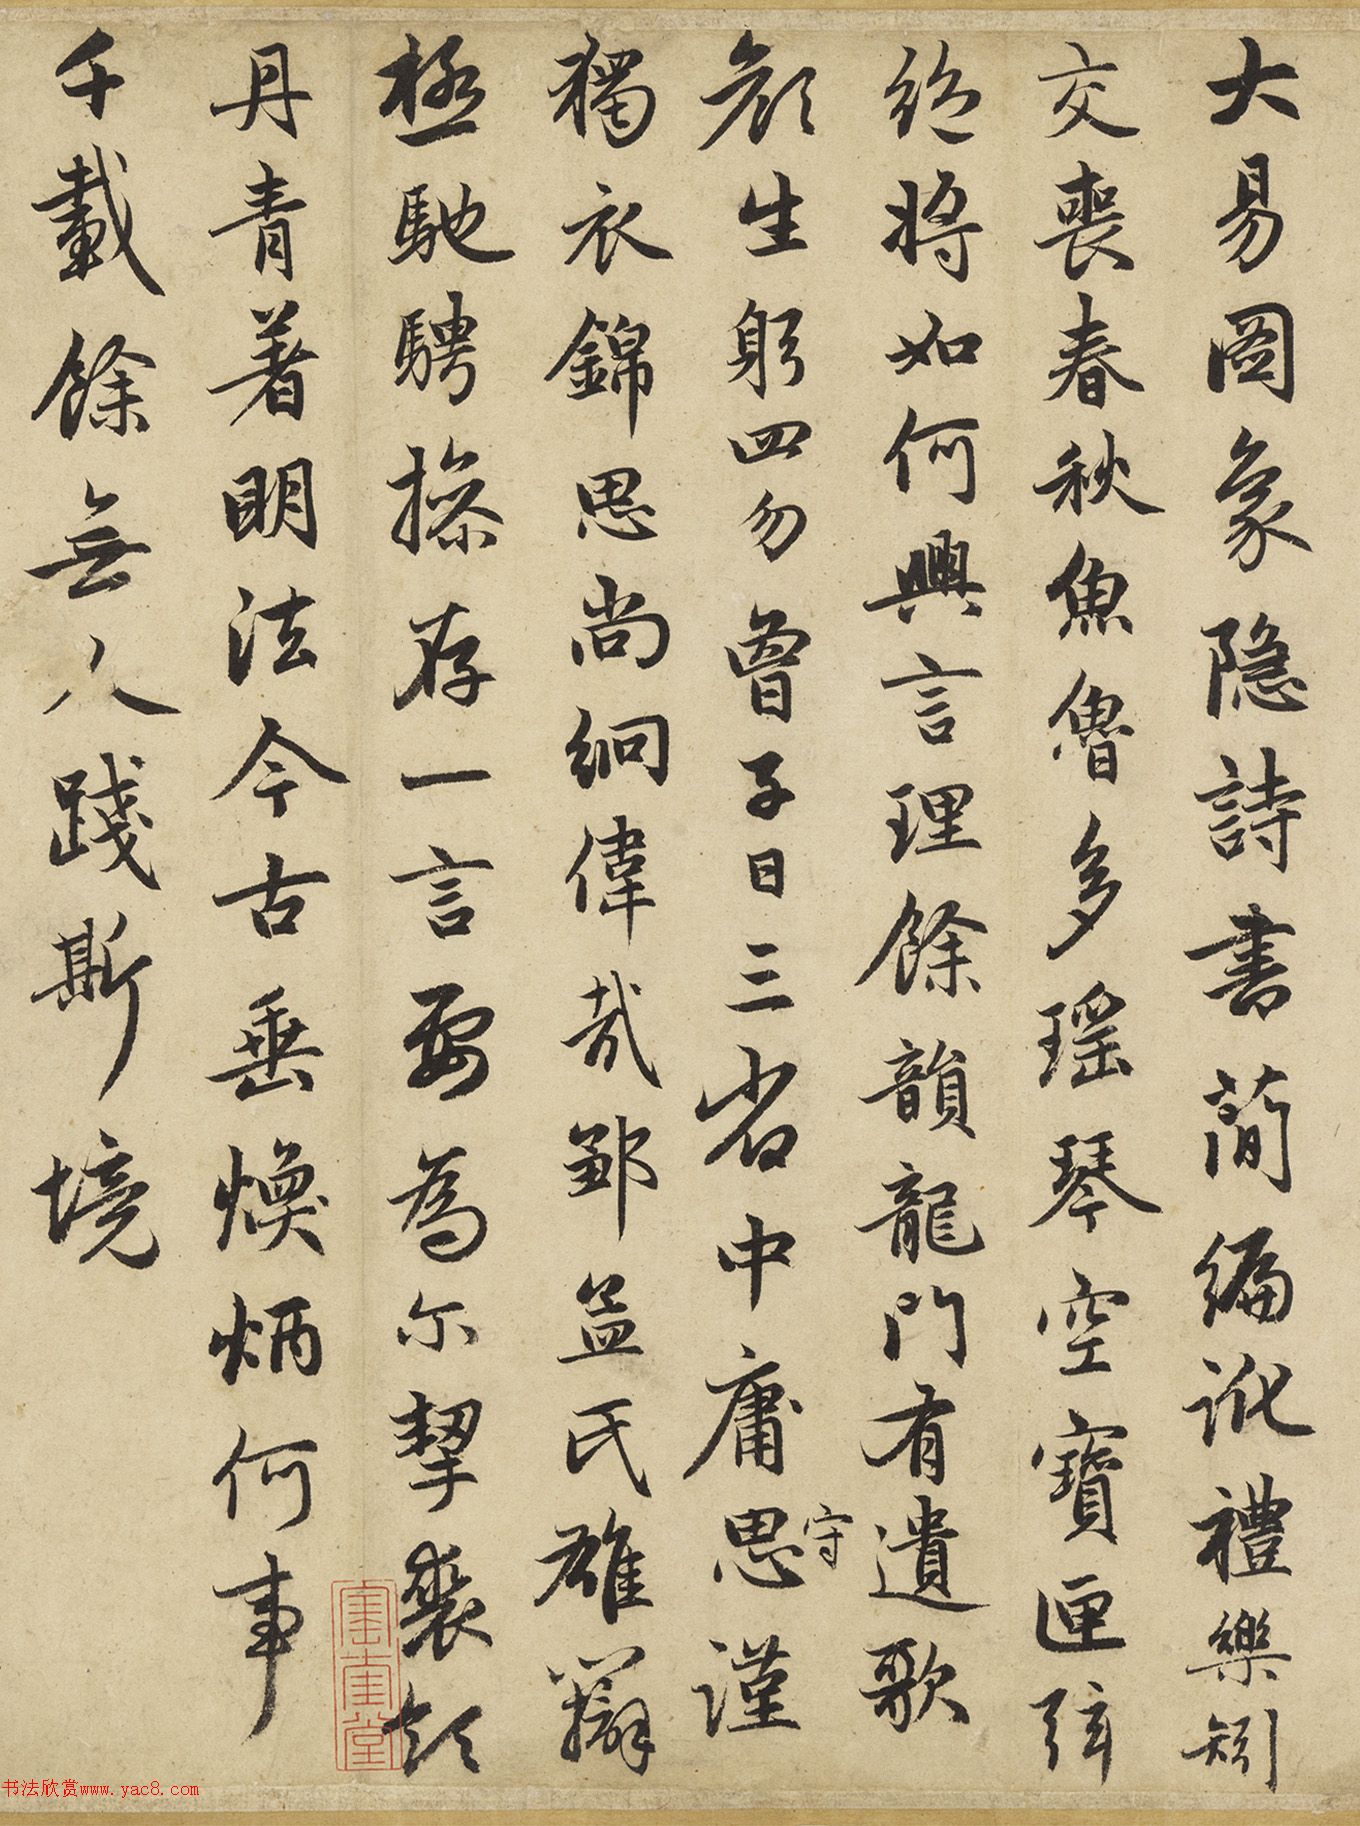 大易圖象隱詩書簡編訛禮樂矧
交喪春秋魚魯多瑤琴空寶匣弦
絕將如何興言理餘韻龍門有遺歌
顏生躬四勿曾子日三省中庸思謹
守
獨衣錦思尚絅偉哉鄒孟氏雄辯
極馳騁操存一言要為尔挈裘領
丹青著明法今古垂煥炳何事
千載餘無人踐斯境
書畫堂
书法欣赏www.yac8.com